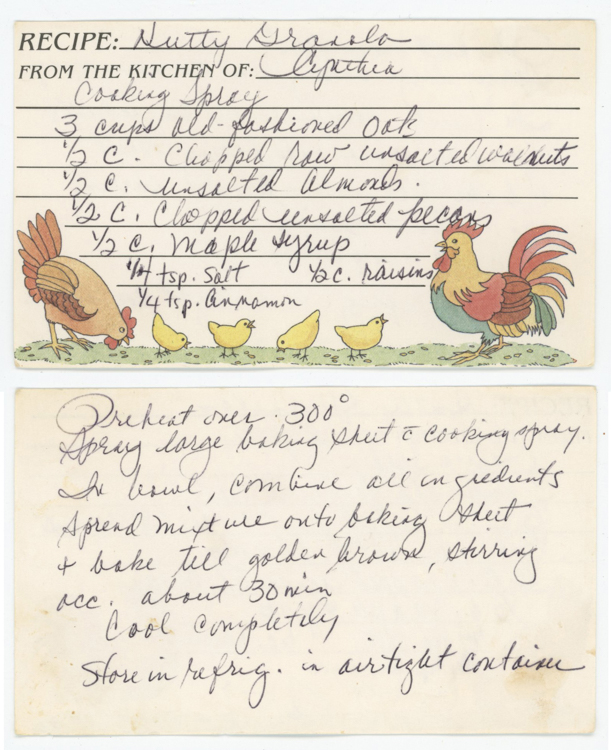 RECIPE: Nutty Granola
FROM THE KITCHEN OF: Cynthia
Cooking Spray
3 cups old-fashioned oats
1/2 C. Chopped raw unsalted walnuts
1/2 C. unsalted almonds.
1/2 C. Chopped unsalted pecans
1/2 C. Maple Syrup
1/4 tsp. Salt 1/2 c. raisins
1/4 tsp. Cinnamon
Preheat oven. 300°
Spray large baking sheet c̄ cooking spray.
In bowl, combine all ingredients
Spread mixture onto baking sheet
+ bake till golden brown, stirring
occ. about 30 min
Cool completely
Store in refrig. in airtight container